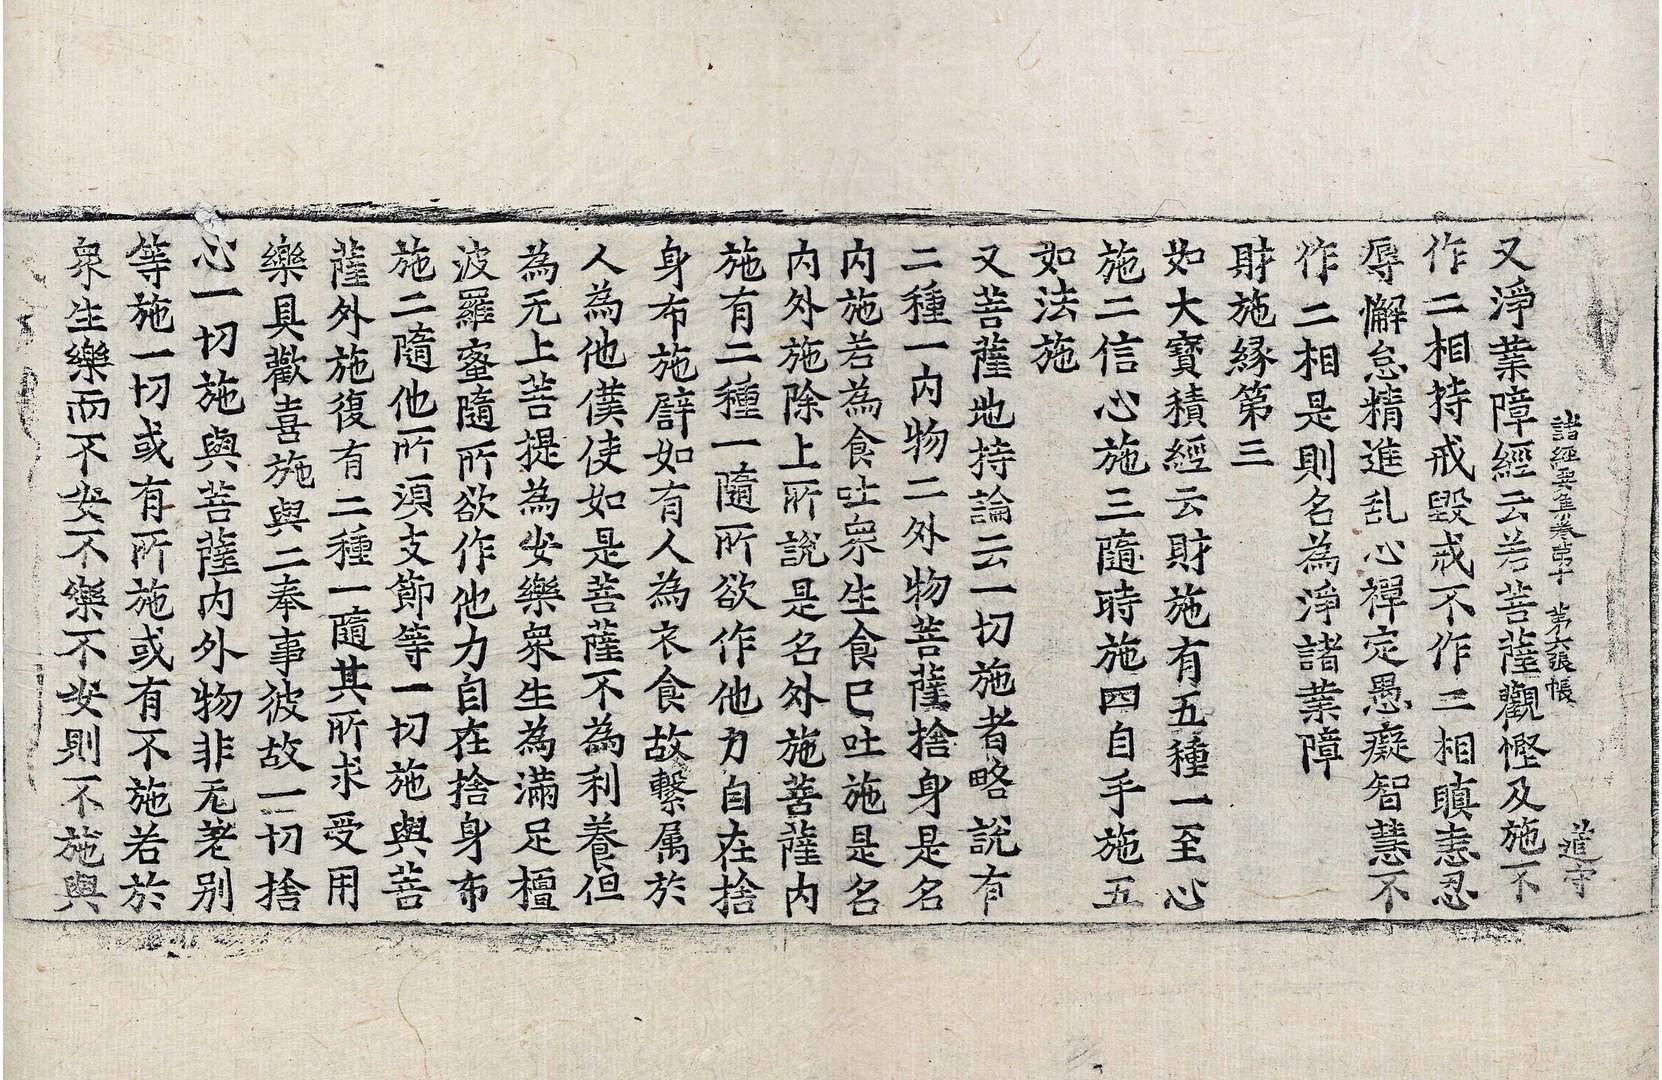 諸經要集卷第十 第六張 帳 
又淨業障經云若菩薩觀慳及施不
作二相持戒毀戒不作二相瞋恚忍
辱懈怠精進乱心禪定愚癡智慧不
作二相是則名為淨諸業障
財施緣第三
如大寶積經云財施有五種一至心
施二信心施三隨時施四自手施五
如法施
又菩薩地持論云一切施者略說有
二種一內物二外物菩薩捨身是名
內施若為食吐衆生食已吐施是名
內外施除上所說是名外施菩薩內
施有二種一隨所欲作他力自在捨
身布施譬如有人為衣食故繫属於
人為他僕使如是菩薩不為利養但
為无上菩提為安樂衆生為滿足檀
波羅蜜隨所欲作他力自在捨身布
施二隨他所須支節等一切施與菩
薩外施復有二種一隨其所求受用
樂具歡喜施與二奉事彼故一切捨
心一切施與菩薩內外物非无差別
等施一切或有所施或有不施若於
衆生樂而不安不樂不安則不施與